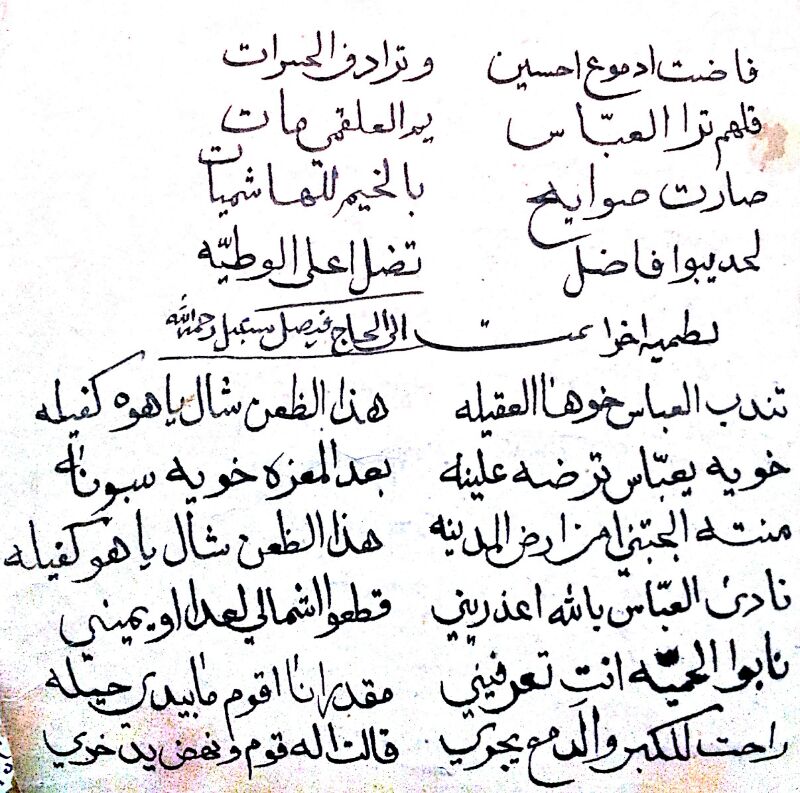 فاضت ادموع احسين وترادف الحسرات
فلهم ترا العباس يم العلقمي مات
صارت صوايح بالخيم للهاشميات
لحديبوا فاضل تضل اعلى الوطيّه
لطميه اخرا الى الحاج فيصل رحمه الله
تندب العباس خوها العقيله هذا الظعن شال ياهوه كفيله
خويه يعبّاس ترضه علينه بعد المعزه خويه سبونه
منته الجبتني امن ارض المدينه هذا الظعن شال ياهو كفيله
نادى العبّاس بالله اعذريني قطعوا اشمالي لعدا او يميني
نابوا الحميّه انتِ تعرفيني مقدر انا اقوم مابيدي حيله
راحت للكبر والدمع يجري قالت اله قوم ونهض يذخري